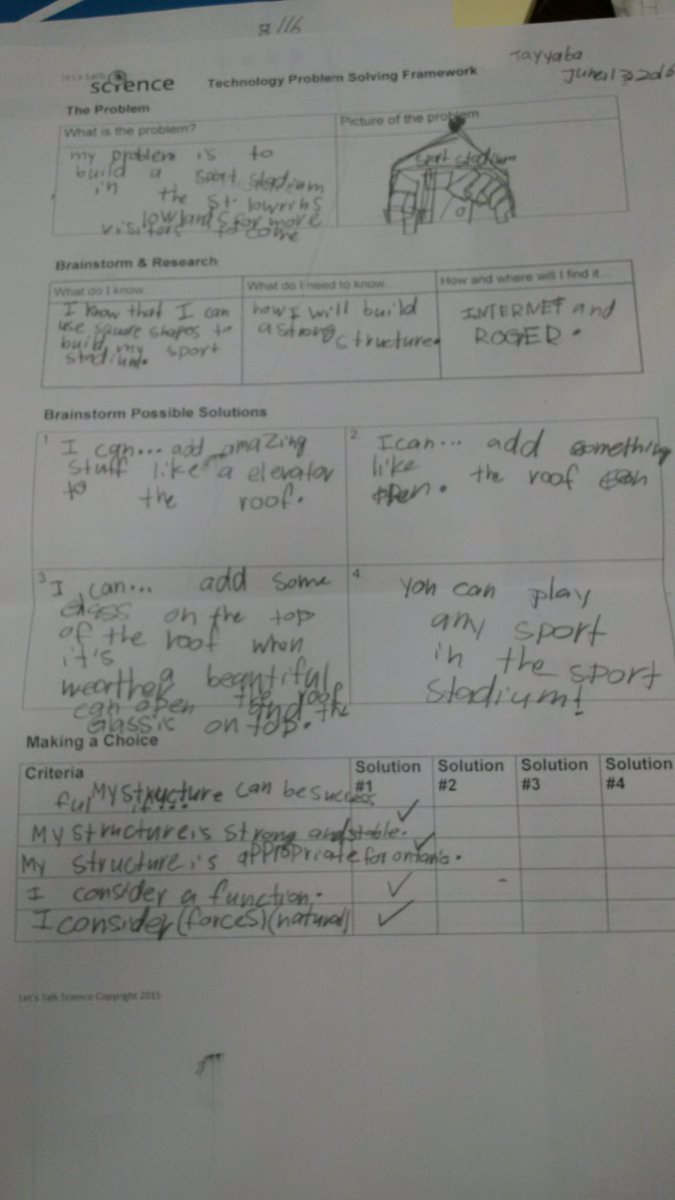 Tayyaba
let's talk
science Technology Problem Solving Framework
June 13 2016
The Problem
What is the problem?
Picture of the problem
my problem is to
build a sport stadium
in the St.
lowlands for more
visitors to come
sport stadium
Brainstorm & Research
What do I know...
What do I need to know...
How and where will I find it...
I know that I can
use square shapes to
build my sport
stadium.
how I will build
a strong
structure.
INTERNET and
ROGER.
Brainstorm Possible Solutions
1
I can... add amazing
stuff like a elevator
to the roof.
2
I can... add something
like the roof can
open.
3
I can... add some
glass on the top
of the roof when
it's a beautiful
wearther
can open the roof and the
glass is on top.
4
you can play
any sport
in the sport
stadium!
Making a Choice
Criteria
Solution #1
Solution #2
Solution #3
Solution #4
My structure can be success
ful
My structure is strong and stable.
My structure is appropriate for
I consider a function.
I consider (forces) (natural)
Let's Talk Science Copyright 2015